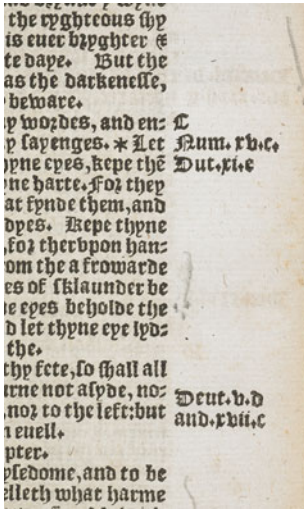 the ryghteous shy
is euer bryghter &
te daye. But the
as the darkenesse,
beware.
y wordes, and en:
y sayenges. * Let
yne eyes, kepe thē
ne harte. For they
at fynde them, and
dyes. Kepe thyne
, for thervpon han:
om the a frowarde
es of sklaunder be
e eyes beholde the
d let thyne eye lyd:
the.
thy fete, so shall all
urne not asyde, no:
, nor to the left: but
euell.
pter.
ysedome, and to be
elleth what harme
C
Num. xv. c.
Dut. xi. c
Deut. v. d
and. xvii. c